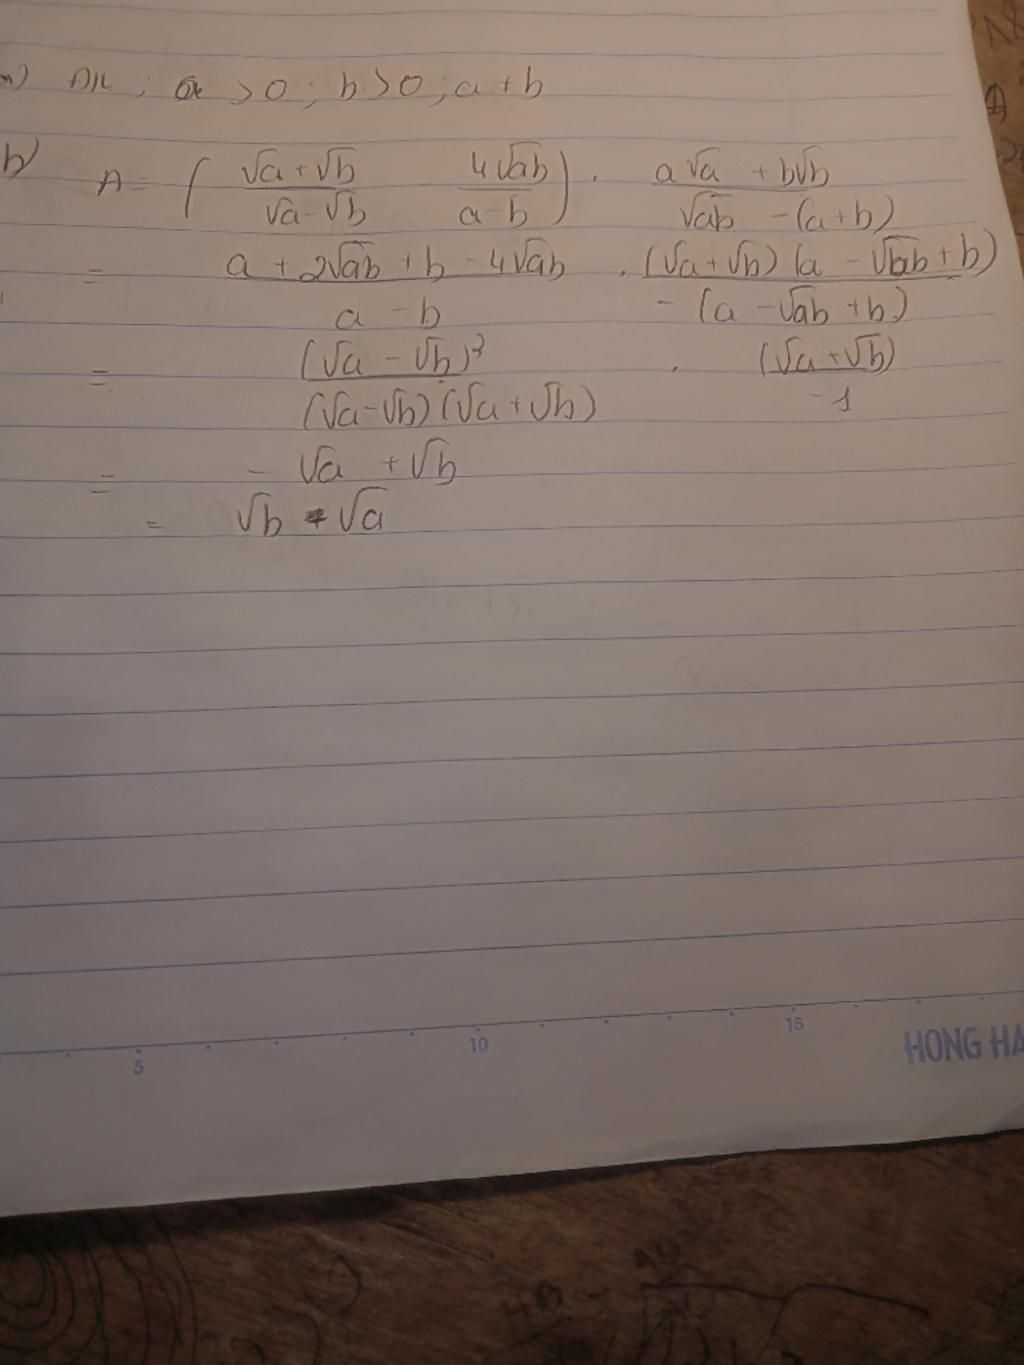 a) ĐK ; a > 0 ; b > 0 ; a ≠ b
b) A = ( √a + √b / √a - √b   4√ab / a - b ) . a√a + b√b / √ab - (a + b)
= a + 2√ab + b - 4√ab / a - b . (√a + √b) (a - √ab + b) / - (a - √ab + b)
= (√a - √b)² / (√a - √b) (√a + √b) . (√a + √b) / -1
= - √a + √b
= √b - √a
5 10 15
HONG HA